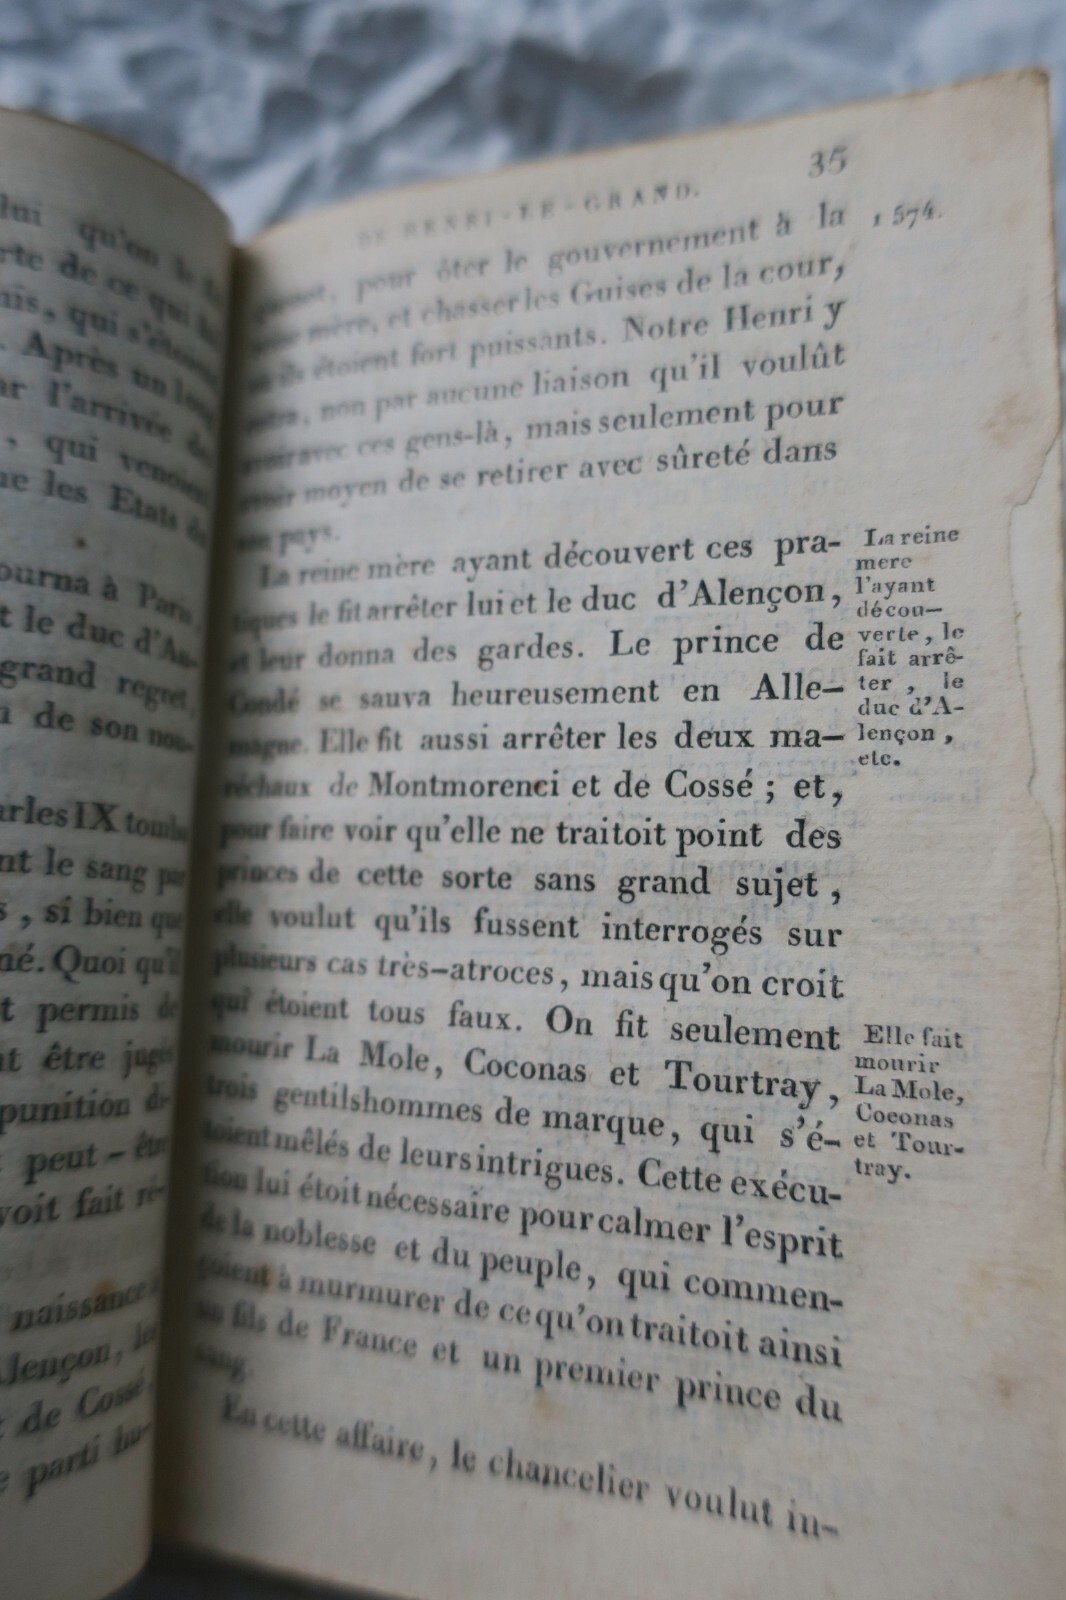 lui qu'on
rte de ce qui
nis, qui
. Après un long
ar l'arrivée de
, qui venoient
ue les Etats de
ourna à Paris
t le duc d'An-
grand regret
de son nou-
arles IX tomba
nt le sang par
s, si bien que
né. Quoi qu'il
t permis de
nt être jugés
punition di-
peut-être
voit fait ré-
naissance
lençon, les
t de Cossé
e parti hu-
DE HENRI-LE-GRAND. 35
pour ôter le gouvernement à la
mère, et chasser les Guises de la cour,
ils étoient fort puissants. Notre Henri y
non par aucune liaison qu'il voulût
avoir avec ces gens-là, mais seulement pour
avoir moyen de se retirer avec sûreté dans
son pays.
La reine mère ayant découvert ces pra-
tiques le fit arrêter lui et le duc d'Alençon,
et leur donna des gardes. Le prince de
Condé se sauva heureusement en Alle-
magne. Elle fit aussi arrêter les deux ma-
réchaux de Montmorenci et de Cossé ; et,
pour faire voir qu'elle ne traitoit point des
princes de cette sorte sans grand sujet,
elle voulut qu'ils fussent interrogés sur
plusieurs cas très-atroces, mais qu'on croit
qui étoient tous faux. On fit seulement
mourir La Mole, Coconas et Tourtray,
trois gentilshommes de marque, qui s'é-
toient mêlés de leurs intrigues. Cette exécu-
tion lui étoit nécessaire pour calmer l'esprit
de la noblesse et du peuple, qui commen-
çoient à murmurer de ce qu'on traitoit ainsi
un fils de France et un premier prince du
sang.
En cette affaire, le chancelier voulut in-
1574.
La reine
mere
l'ayant
décou-
verte, le
fait arrê-
ter, le
duc d'A-
lençon,
etc.
Elle fait
mourir
La Mole,
Coconas
et Tour-
tray.